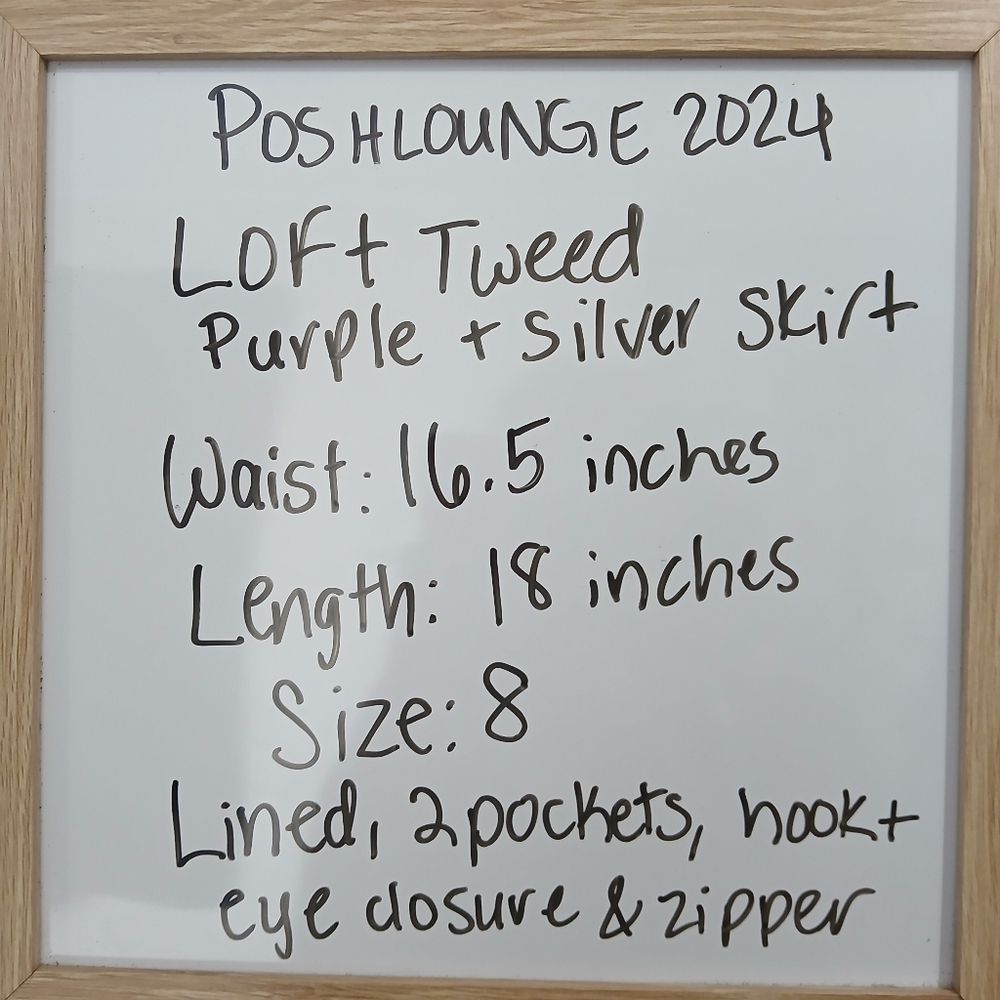 POSHLOUNGE 2024
LOFt Tweed
Purple + Silver Skirt
Waist: 16.5 inches
Length: 18 inches
Size: 8
Lined, 2 pockets, hook +
eye closure & zipper